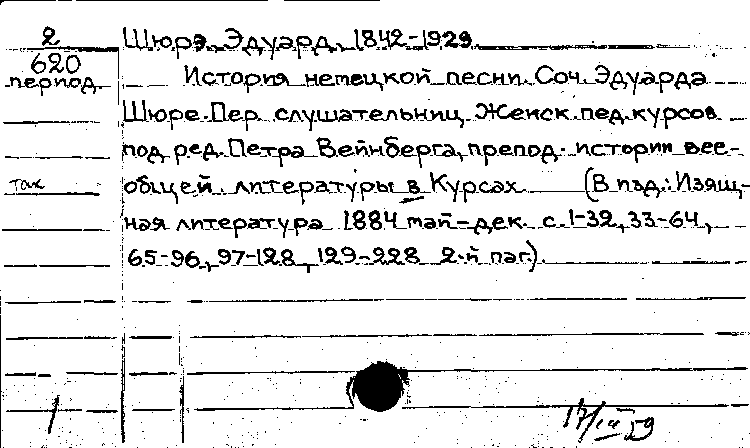 2
620
период.
так
Шюрэ, Эдуард, 1842-1929
История немецкой песни. Соч. Эдуарда
Шюре. Пер. слушательниц Женск. пед. курсов
под ред. Петра Вейнберга, препод. истории все-
общей литературы в Курсах (В изд.: Изящ-
ная литература 1884 май-дек. с. 1-32, 33-64,
65-96, 97-128, 129-228 2-й паг.).
1